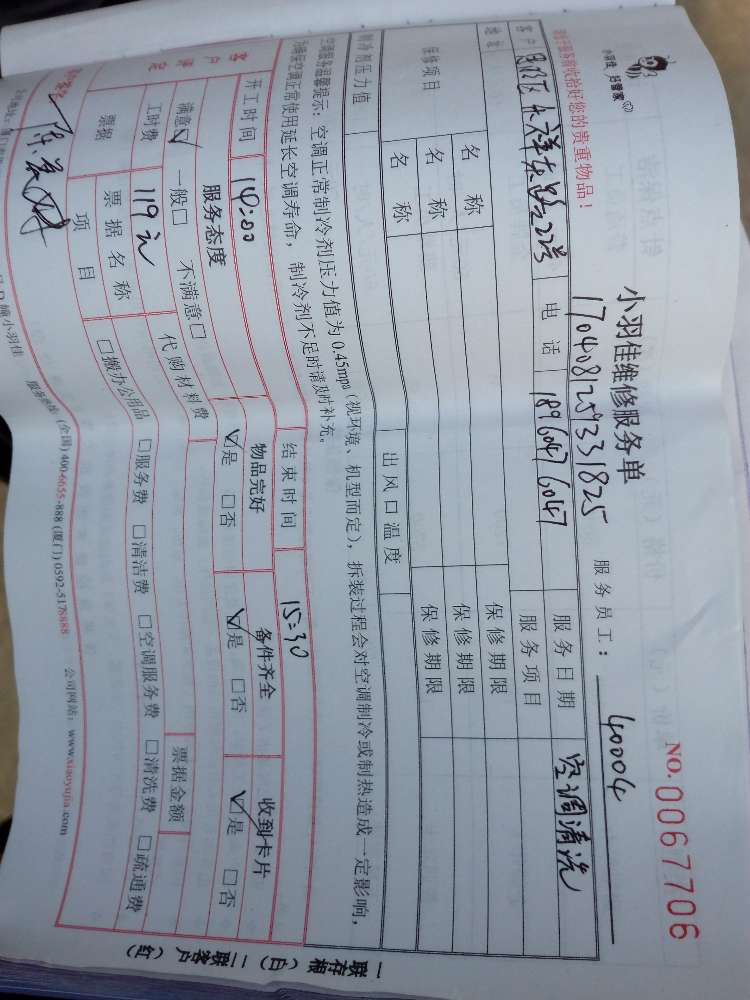 小羽佳 好管家
小羽佳维修服务单
NO.0067706
170408125933 1825
服务员工: 40004
请在服务前收拾好您的贵重物品!
客户
电话 18960476047
服务日期 空调清洗
地址
服务项目
保修项目 名称 保修期限
名称 保修期限
名称 保修期限
制冷剂压力值 出风口温度
空调服务温馨提示:空调正常制冷剂压力值为0.45mpa(视环境、机型而定),拆装过程会对空调制冷或制热造成一定影响,
为确保空调正常使用延长空调寿命,制冷剂不足时请及时补充。
客户确定
开工时间 14:00 结束时间 15:30
服务态度 物品完好 备件齐全 收到卡片
满意☑ 一般□ 不满意□ ☑是 □否 ☑是 □否 ☑是 □否
工时费 119元 代购材料费
票据 票据名称 票据金额
项目 □搬办公用品 □服务费 □清洁费 □空调服务费 □清洗费 □疏通费
服务热线:(全国)400-6655-888(厦门)0592-5178888 公司网站:www.xiaoyujia.com
一联存根(白)二联客户(红)